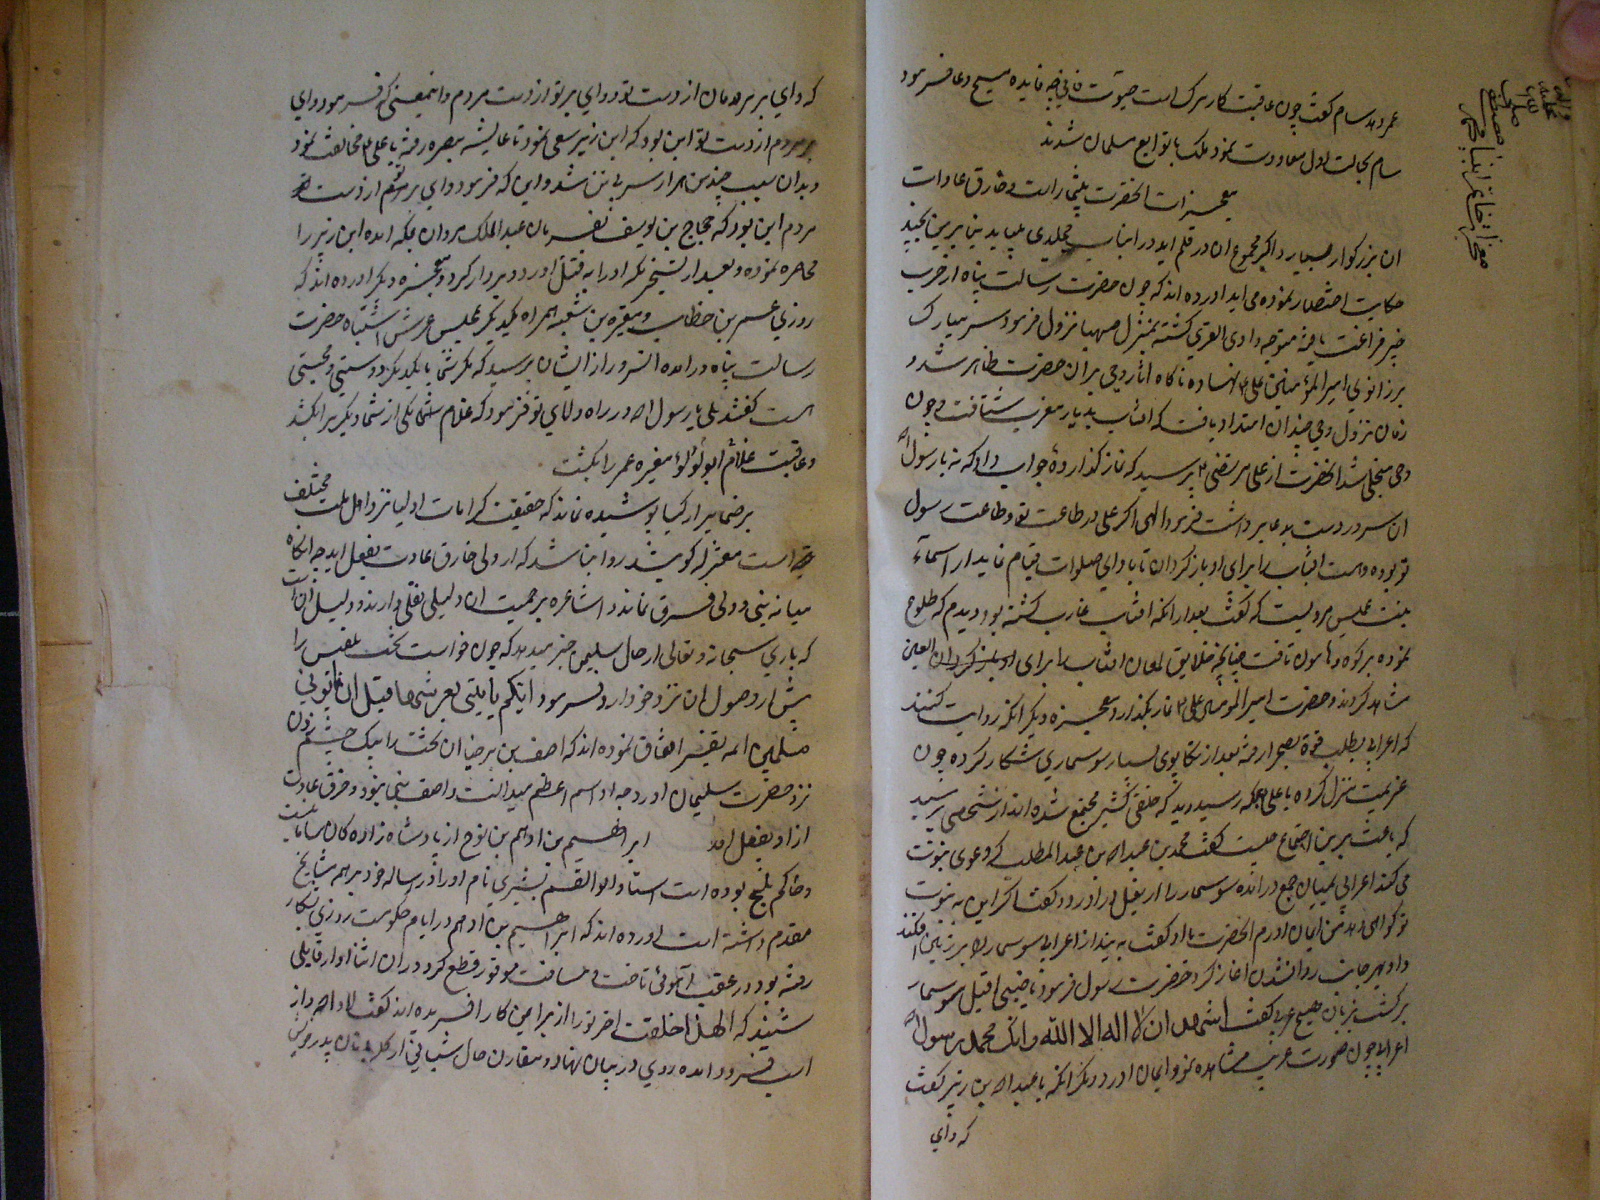 عمر و سام گفت چون عاقبت کار مرگ است حیوت فانی چه فایده مسیح دعا فرمود
سام بحالت اول معاودت نمود ملک با توابع مسلمان شدند
معجزات آنحضرت بیشمار است و خارق عادات
ان بزرگوار بسیار و اگر مجموع ان در قلم اید در انباب مجلدی میباید بنابرین بچند
حکایت اختصار نموده می اید اورده اند که چون حضرت رسالت پناه از حرب
خیبر فراغت یافته متوجه وادی القری گشته بمنزل صهبا نزول فرمود سر مبارک
بر زانوی امیر المؤمنین علی نهاده ناگاه اثار وحی بران حضرت ظاهر شد و
زمان نزول وحی چندان امتداد یافت که افتاب بدیار مغرب شتافت و چون
وحی منجلی شد انحضرت از علی مرتضی پرسید که نماز گذارده جواب داد که نه یا رسول الله
ان سرور دست بدعا برداشت فرمود الهی اگر علی در طاعت تو و طاعت رسول
تو بوده است افتاب را برای او باز گردان تا باداء صلوات قیام نماید از اسماء
بنت عمیس مرویست که گفت بعد از انکه افتاب غارب گشته بود دیدم که طلوع
نموده بر کوه و هامون تافت چنانچه خلایق لمعان افتاب را برای العین
مشاهد کردند و حضرت امیر المومنین علی نماز بگذارد و معجزه دیگر انکه روایت کنند
که اعرابی بطلب قوة بصحرا رفته بعد از تکاپوی بسیار سوسماری شکار کرده چون
عزیمت منزل کرده بجایگه رسید دید که خلقی کثیر مجتمع شده اند از شخصی پرسید
که باعث برین اجتماع چیست گفت محمد بن عبدالله بن عبدالمطلب که دعوی نبوت
می کند اعرابی بمیان جمع درامده سوسمار را از بغل براورد و گفت اگر این به نبوت
تو گواهی دهد من ایمان اورم انحضرت با او گفت بینداز اعرابی سوسمار را بر زمین افکند
و او بهر جانب روان شدن اغاز کرد حضرت رسول فرمود یا ضب اقبل سوسمار
برگشت بزبان فصیح عربی گفت اشهد ان لا اله الا الله و انک محمد رسول الله
اعرابی چون صورت غریب مشاهده نمود ایمان اورد دیگر انکه با عبدالله بن زبیر گفت
که وای
معجزات خاتم انبیا محمد مصطفی
صلی الله علیه و اله
که وای بر مردمان از دست تو و وای بر تو از دست مردم و انمعنی که فرمود وای
بر مردم از دست تو این بود که ابن زبیر سعی نمود تا عایشه ببصره رفته با علی مخالفت نمود
و بدان سبب چندین هزار سر بی تن شد و این که فرمود وای بر تو از دست
مردم این بود که حجاج بن یوسف بفرمان عبدالملک مروان بمکه امده ابن زبیر را
محاصره نموده و بعد از تسخیر مکه او را به قتل اورد و بردار کرد و معجزه دیگر اورده اند که
روزی عمر بن خطاب و مغیره بن شعبه همراه یکدیگر بمجلس عرش اشتباه حضرت
رسالت پناه درامده انسرور از ایشان پرسید که مگر شما با یکدیگر دوستی و محبتی
هست گفتند بلی یا رسول الله در راه ولای تو فرمود که غلام شما یکی از شما دیگر را بکشد
و عاقبت غلام ابو لؤلؤ مغیره عمر را بکشت
بر ضمایر ازکیا پوشیده نماند که حقیقت کرامات اولیا نزد اهل ملت مختلف
فیه است معتزله گویند روا نباشد که از ولی خارق عادت بفعل اید چه انگاه
میانه نبی و ولی فرق نماند و اشاعره بر حجیت ان دلیلی نقلی دارند و دلیل ان است
که باری سبحانه و تعالی از حال سلیمان خبر میدهد که چون خواست تخت بلقیس را
پیش از وصول ان نزد خود ارد فرمود ایکم یأتینی بعرشها قبل ان یأتونی
مسلمین ائمه تفسیر اتفاق نموده اند که اصف بن برخیا ان تخت را بیک چشم زدن
نزد حضرت سلیمان اورد چه او اسم اعظم میدانست و اصف نبی نبود و خرق عادت
از او بفعل امد ابراهیم بن ادهم بن نوح از پادشاه زادگان
و حاکم بلخ بوده است استاد ابو القسم قشیری نام او را در رساله خود بر همه مشایخ
مقدم داشته است اورده اند که ابراهیم بن ادهم در ایام حکومت روزی بشکار
رفته بود در عقب اهوئی تاخت و مسافت موفور قطع کرد در ان اثنا اواز قایلی
شنید که الهذا خلقت اخر تو را از برای این کار افریده اند گفت لا والله و از
اسب فرود امده روی در بیابان نهاد و مقارن حال شبانی از گله بانان پدر خویش